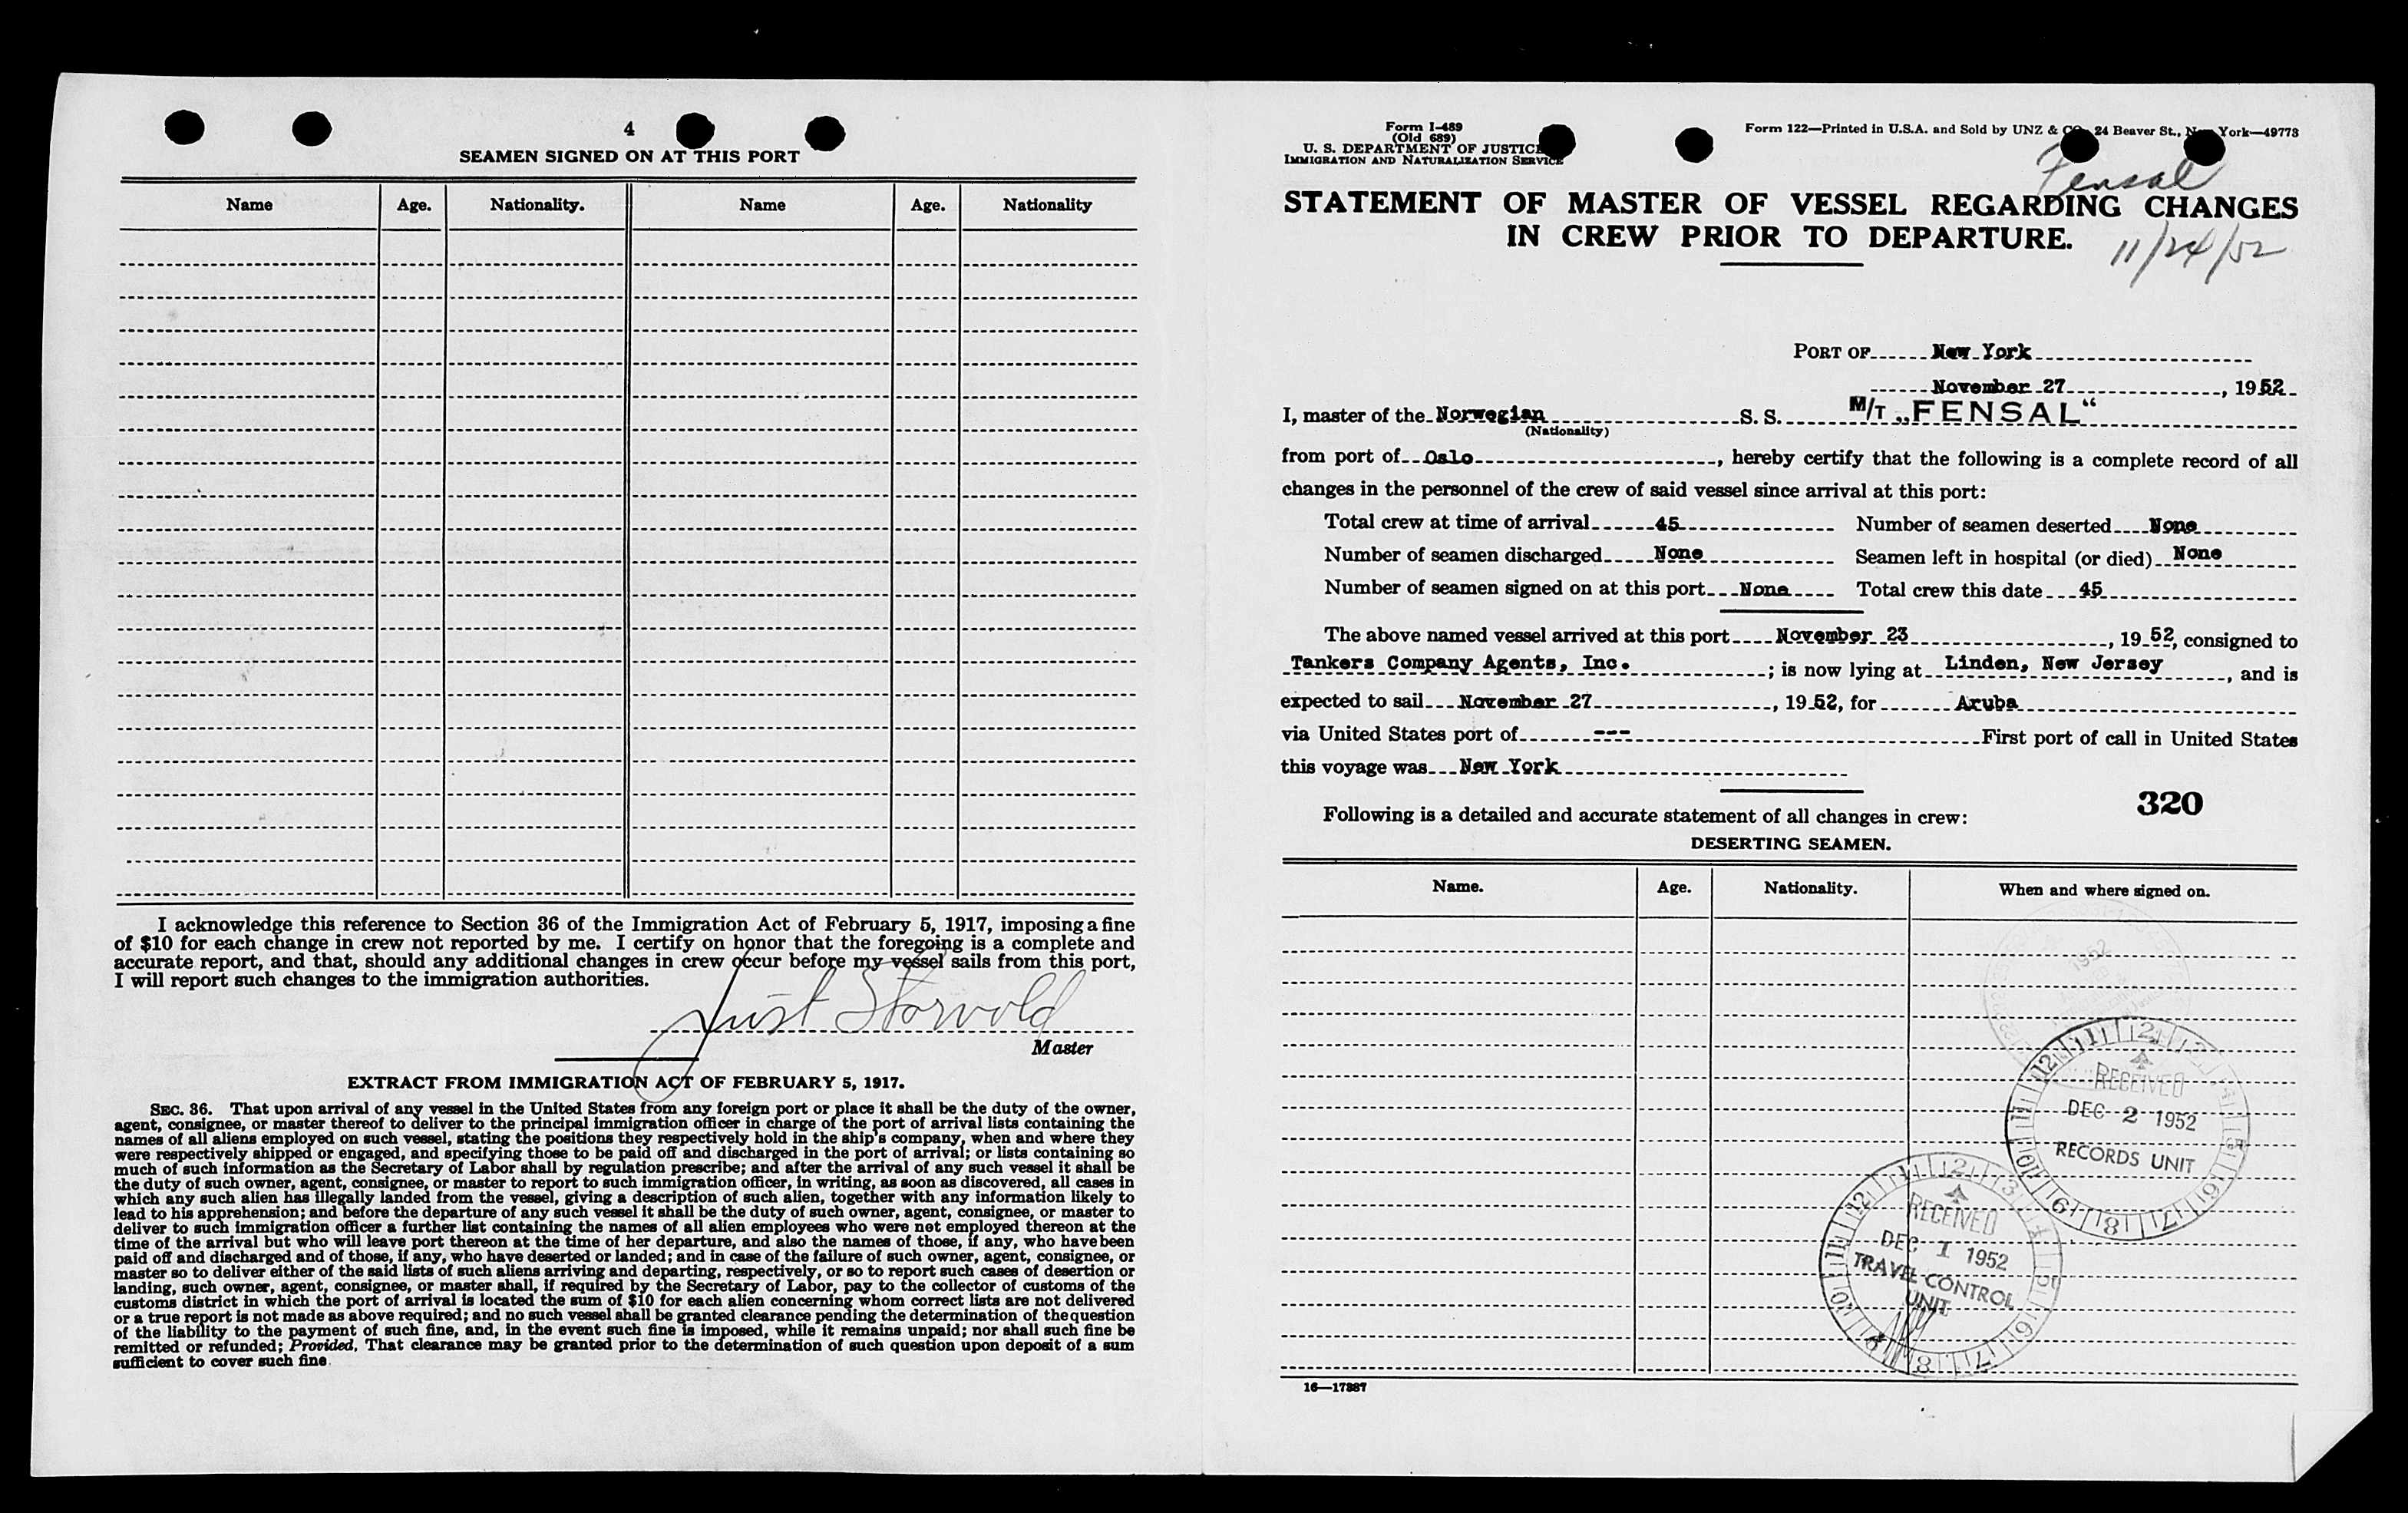 4
SEAMEN SIGNED ON AT THIS PORT
Name Age. Nationality. Name Age. Nationality
I acknowledge this reference to Section 36 of the Immigration Act of February 5, 1917, imposing a fine
of $10 for each change in crew not reported by me. I certify on honor that the foregoing is a complete and
accurate report, and that, should any additional changes in crew occur before my vessel sails from this port,
I will report such changes to the immigration authorities.
Just Storvold
Master
EXTRACT FROM IMMIGRATION ACT OF FEBRUARY 5, 1917.
SEC. 36. That upon arrival of any vessel in the United States from any foreign port or place it shall be the duty of the owner,
agent, consignee, or master thereof to deliver to the principal immigration officer in charge of the port of arrival lists containing the
names of all aliens employed on such vessel, stating the positions they respectively hold in the ship's company, when and where they
were respectively shipped or engaged, and specifying those to be paid off and discharged in the port of arrival; or lists containing so
much of such information as the Secretary of Labor shall by regulation prescribe; and after the arrival of any such vessel it shall be
the duty of such owner, agent, consignee, or master to report to such immigration officer, in writing, as soon as discovered, all cases in
which any such alien has illegally landed from the vessel, giving a description of such alien, together with any information likely to
lead to his apprehension; and before the departure of any such vessel it shall be the duty of such owner, agent, consignee, or master to
deliver to such immigration officer a further list containing the names of all alien employees who were not employed thereon at the
time of the arrival but who will leave port thereon at the time of her departure, and also the names of those, if any, who have been
paid off and discharged and of those, if any, who have deserted or landed; and in case of the failure of such owner, agent, consignee, or
master so to deliver either of the said lists of such aliens arriving and departing, respectively, or so to report such cases of desertion or
landing, such owner, agent, consignee, or master shall, if required by the Secretary of Labor, pay to the collector of customs of the
customs district in which the port of arrival is located the sum of $10 for each alien concerning whom correct lists are not delivered
or a true report is not made as above required; and no such vessel shall be granted clearance pending the determination of the question
of the liability to the payment of such fine, and, in the event such fine is imposed, while it remains unpaid; nor shall such fine be
remitted or refunded; Provided, That clearance may be granted prior to the determination of such question upon deposit of a sum
sufficient to cover such fine.
Form I-489
(Old 689)
U. S. DEPARTMENT OF JUSTICE
IMMIGRATION AND NATURALIZATION SERVICE
Form 122—Printed in U.S.A. and Sold by UNZ & CO. 24 Beaver St., New York—49773
Fensal
STATEMENT OF MASTER OF VESSEL REGARDING CHANGES
IN CREW PRIOR TO DEPARTURE.
11/24/52
PORT OF New York
November 27, 1952
I, master of the Norwegian S. S. M/T „FENSAL“
(Nationality)
from port of Oslo, hereby certify that the following is a complete record of all
changes in the personnel of the crew of said vessel since arrival at this port:
Total crew at time of arrival 45 Number of seamen deserted None
Number of seamen discharged None Seamen left in hospital (or died) None
Number of seamen signed on at this port None Total crew this date 45
The above named vessel arrived at this port November 23, 1952, consigned to
Tankers Company Agents, Inc. ; is now lying at Linden, New Jersey, and is
expected to sail November 27, 1952, for Aruba
via United States port of --- First port of call in United States
this voyage was New York
320
Following is a detailed and accurate statement of all changes in crew:
DESERTING SEAMEN.
Name. Age. Nationality. When and where signed on.
1952
RECEIVED
DEC 2 1952
RECORDS UNIT
RECEIVED
DEC 1 1952
TRAVEL CONTROL
UNIT
16—17387